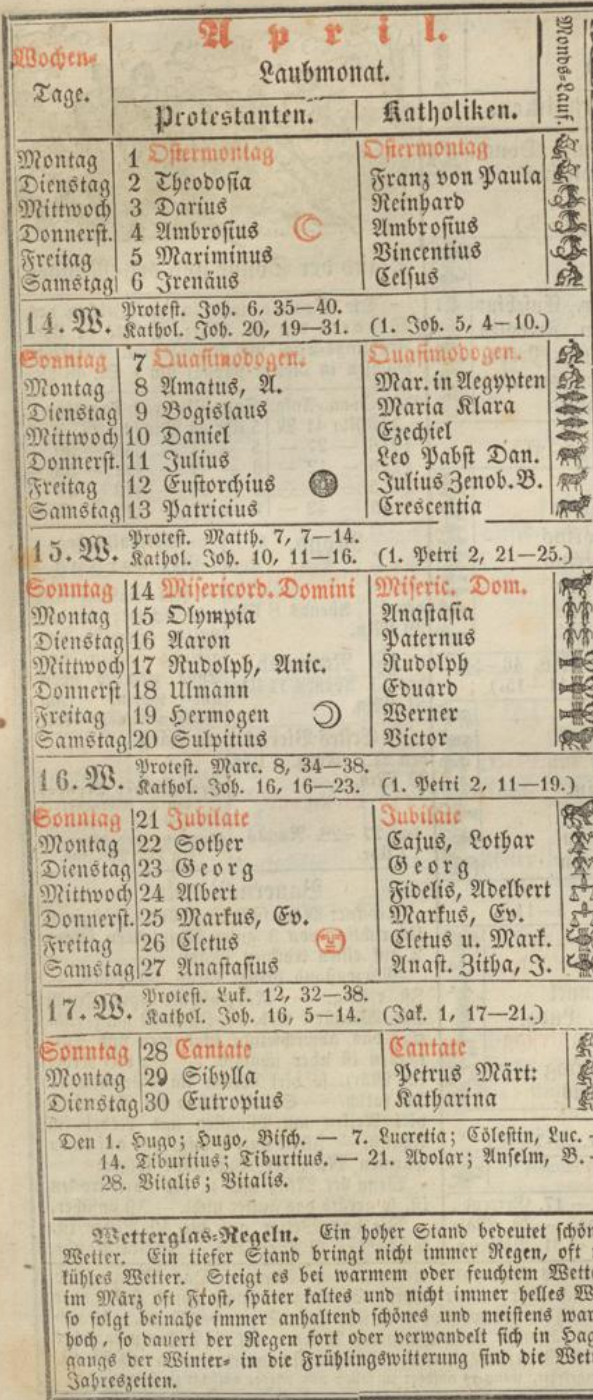 Wochen-Tage.
April.
Laubmonat.
Protestanten. Katholiken.
Monds-Lauf.
Montag 1 Ostermontag Ostermontag
Dienstag 2 Theodosia Franz von Paula
Mittwoch 3 Darius Reinhard
Donnerst. 4 Ambrosius Ambrosius
Freitag 5 Mariminus Vincentius
Samstag 6 Irenäus Celsus
14. W. Protest. Joh. 6, 35—40.
Kathol. Joh. 20, 19—31. (1. Joh. 5, 4—10.)
Sonntag 7 Quasimodogen. Quasimodogen.
Montag 8 Amatus, A. Mar. in Aegypten
Dienstag 9 Bogislaus Maria Klara
Mittwoch 10 Daniel Ezechiel
Donnerst. 11 Julius Leo Pabst Dan.
Freitag 12 Eustorchius Julius Zenob. B.
Samstag 13 Patricius Crescentia
15. W. Protest. Matth. 7, 7—14.
Kathol. Joh. 10, 11—16. (1. Petri 2, 21—25.)
Sonntag 14 Misericord. Domini Miseric. Dom.
Montag 15 Olympia Anastasia
Dienstag 16 Aaron Paternus
Mittwoch 17 Rudolph, Anic. Rudolph
Donnerst 18 Ulmann Eduard
Freitag 19 Hermogen Werner
Samstag 20 Sulpitius Victor
16. W. Protest. Marc. 8, 34—38.
Kathol. Joh. 16, 16—23. (1. Petri 2, 11—19.)
Sonntag 21 Jubilate Jubilate
Montag 22 Sother Cajus, Lothar
Dienstag 23 Georg Georg
Mittwoch 24 Albert Fidelis, Adelbert
Donnerst. 25 Markus, Ev. Markus, Ev.
Freitag 26 Cletus Cletus u. Mark.
Samstag 27 Anastasius Anast. Zitha, J.
17. W. Protest. Luk. 12, 32—38.
Kathol. Joh. 16, 5—14. (Jak. 1, 17—21.)
Sonntag 28 Cantate Cantate
Montag 29 Sibylla Petrus Märt:
Dienstag 30 Eutropius Katharina
Den 1. Hugo; Hugo, Bisch. — 7. Lucretia; Cölestin, Luc. -
14. Tiburtius; Tiburtius. — 21. Adolar; Anselm, B. -
28. Vitalis; Vitalis.
Wetterglas-Regeln. Ein hoher Stand bedeutet schön
Wetter. Ein tiefer Stand bringt nicht immer Regen, oft
kühles Wetter. Steigt es bei warmem oder feuchtem Wette
im März oft Frost, später kaltes und nicht immer helles W
so folgt beinahe immer anhaltend schönes und meistens war
hoch, so dauert der Regen fort oder verwandelt sich in Hag
gangs der Winter- in die Frühlingswitterung sind die Wett
Jahreszeiten.